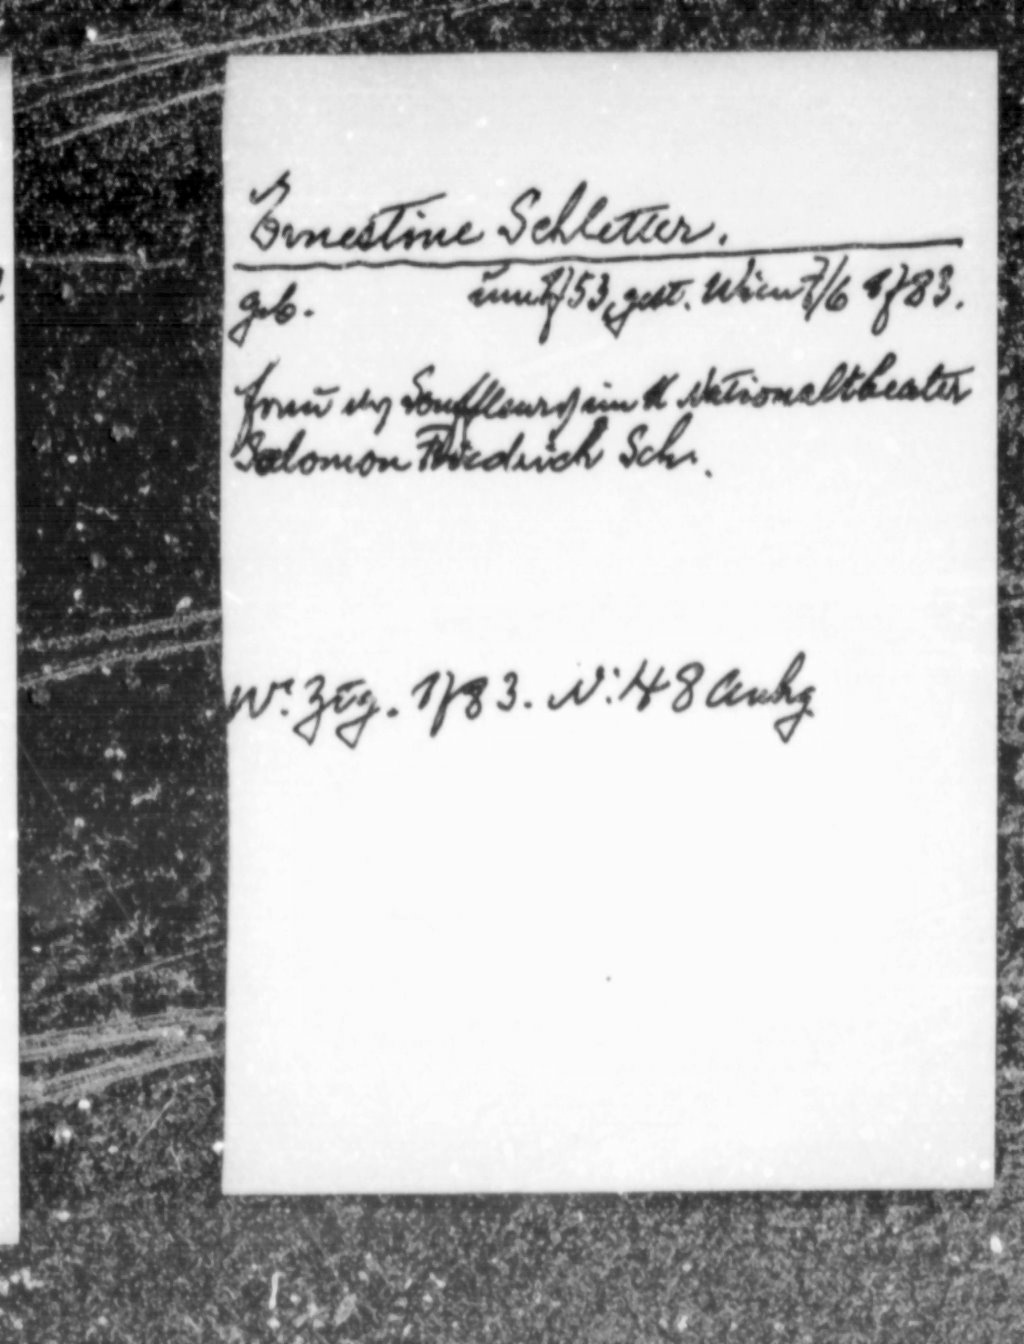 Ernestine Schletter.
geb. um 1753, gest. Wien 7/6 1783.
Frau des Souffleurs im k Nationaltheater
Salomon Friedrich Sch.
Wr. Ztg. 1783. N: 48 Anhg